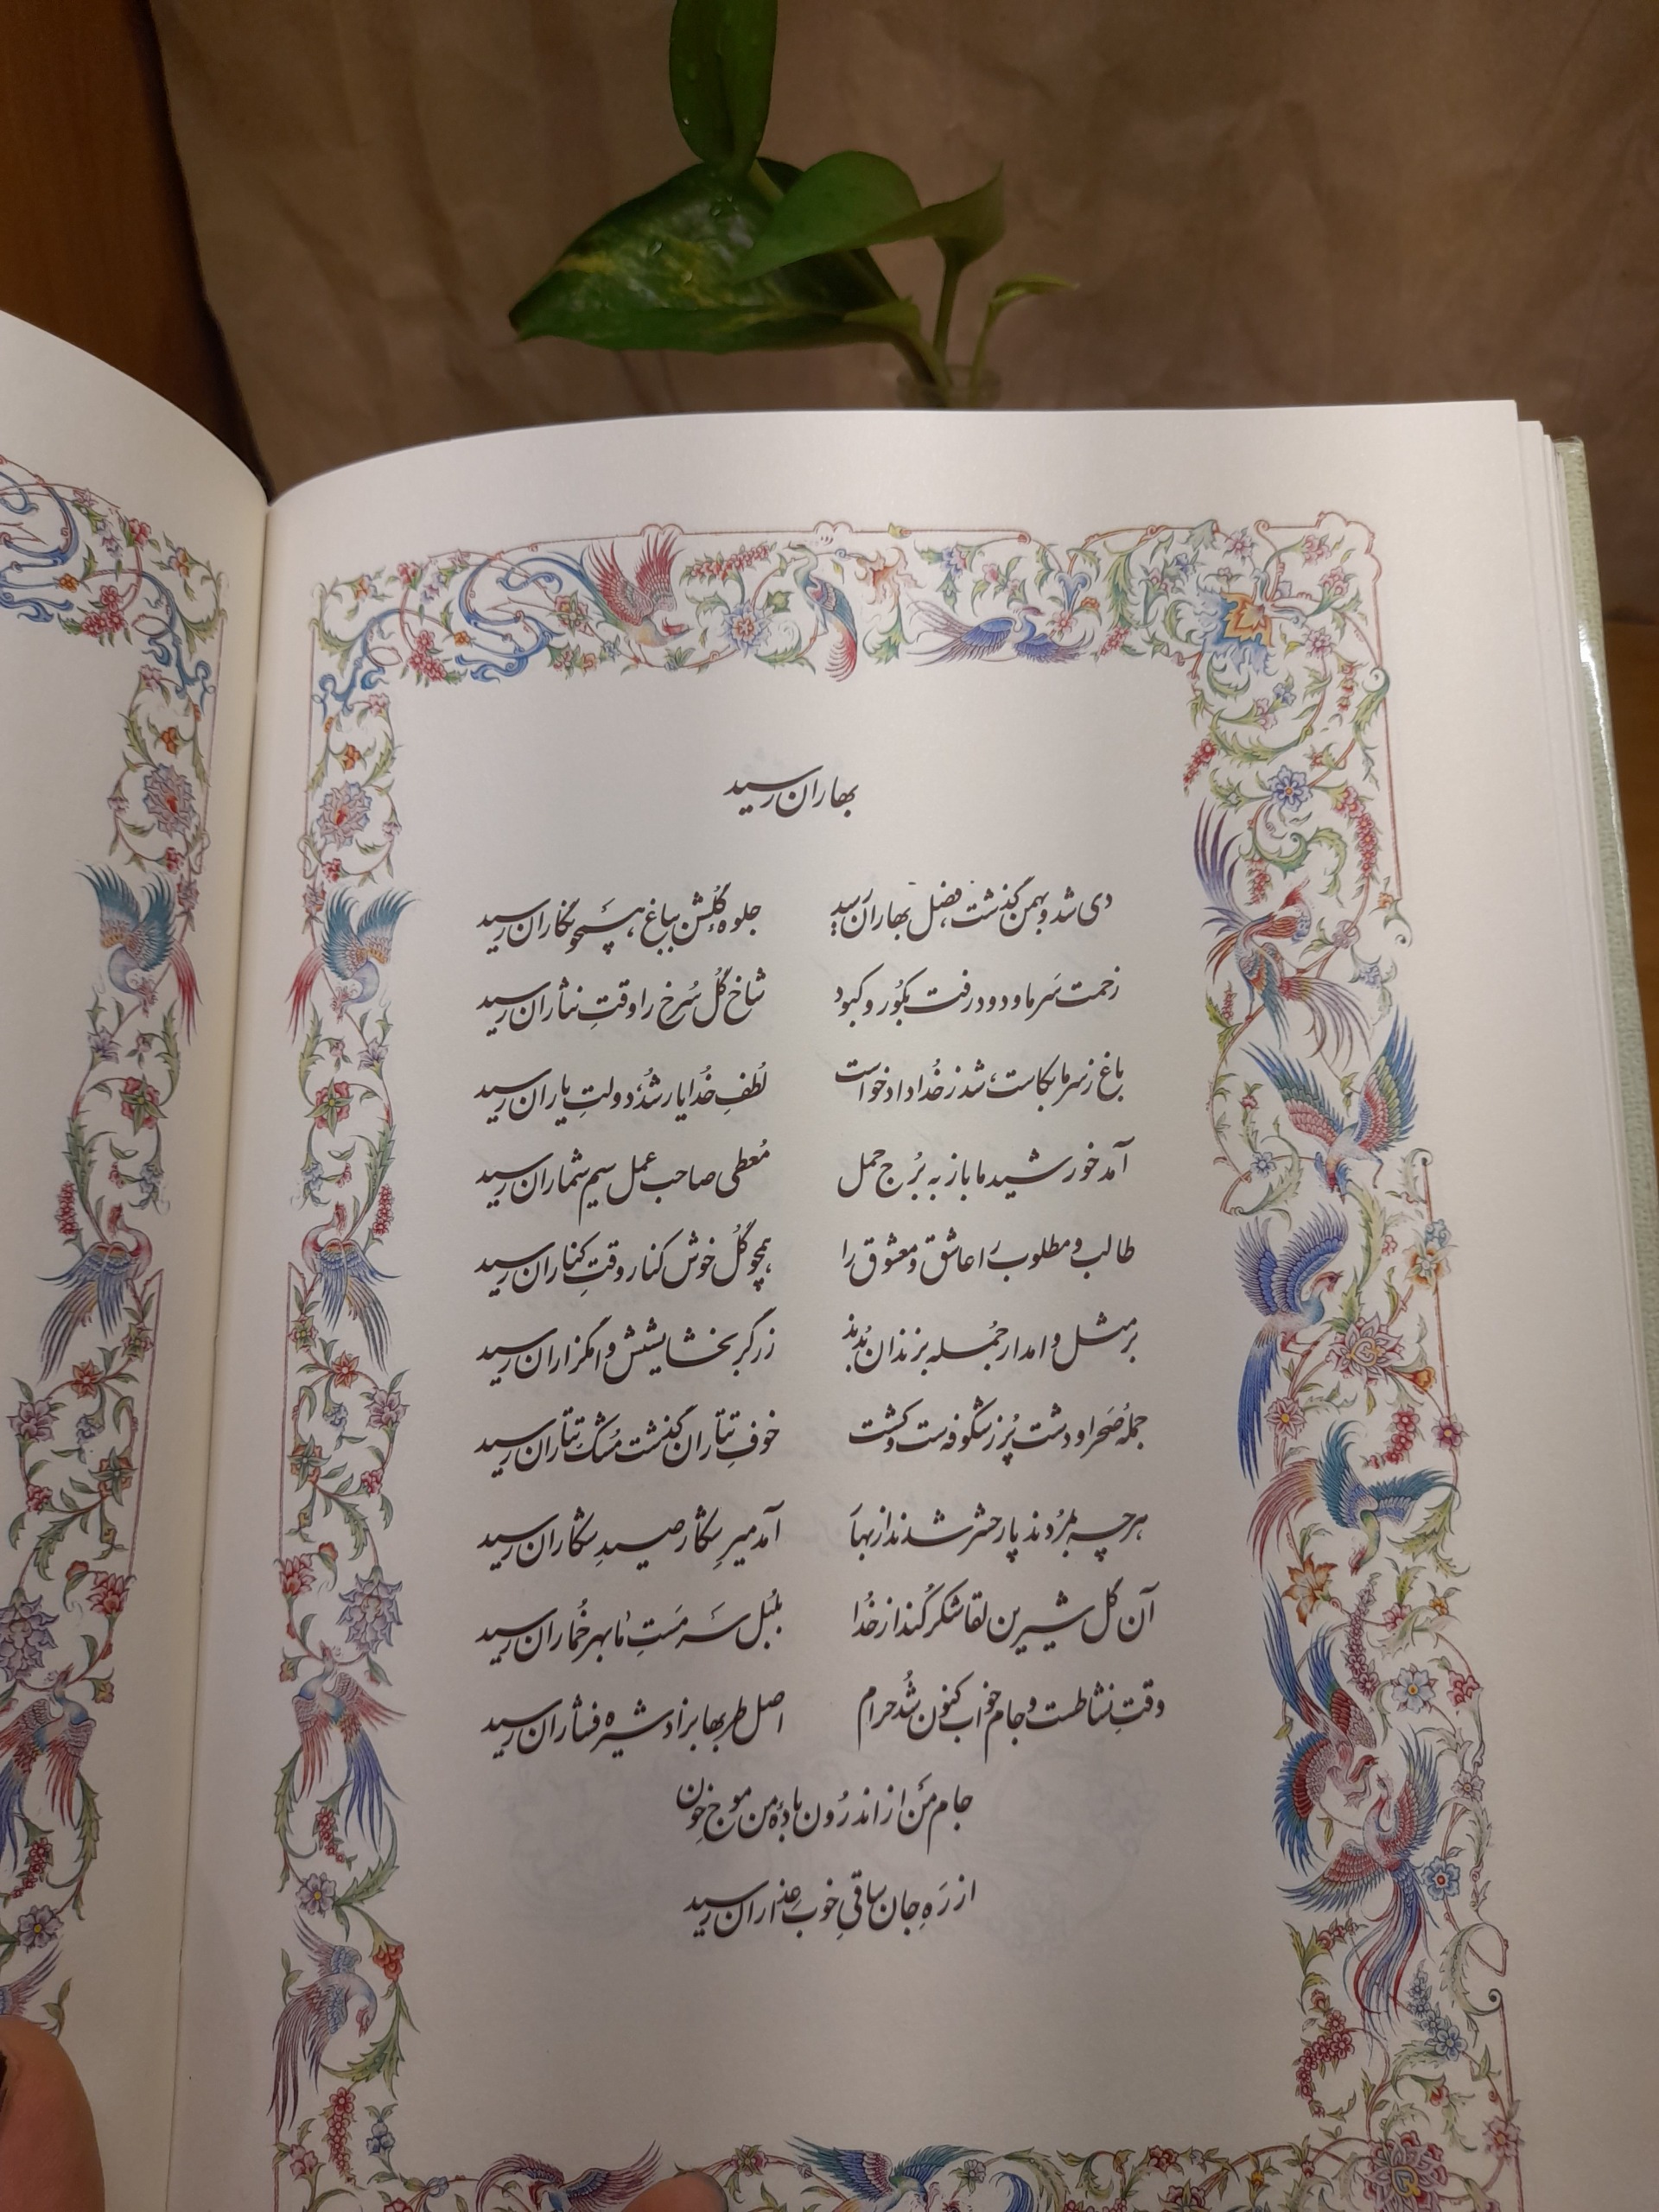 بهاران رسید
دی شد و بهمن گذشت، فصل بهاران رسید جلوهٔ گلشن بباغ، همچو نگاران رسید
زحمت سَرما و دود رفت بکُور و کبود شاخِ گُل سُرخ را وقتِ نثاران رسید
باغ ز سرما بکاست، شد ز خُدا دادخواست لُطفِ خُدا یار شُد، دولتِ یاران رسید
آمد خورشید ما باز به بُرج حمل مُعطی صاحب عمل سیم شماران رسید
طالب و مطلوب را عاشق و معشوق را همچو گُل خوش کنار وقتِ کناران رسید
بر مثل وامدار جُمله بزندان بُدند زرگر بخشایشش وامگزاران رسید
جملهٔ صَحرا و دشت پُر ز شکوفه‌ست و کشت خوفِ تتاران گذشت مُشک تتاران رسید
هرچه بمُردند پار حشر شدند از بهار آمد میرِ شکار صیدِ شکاران رسید
آن گل شیرین لقا شکر کُند از خُدا بلبُل سَرمَستِ ما بهر خُماران رسید
وقتِ نشاطست و جام خواب کنون شُد حرام اصل طربها بزاد شیره فشاران رسید
جام من از اندرُون بادهٔ من موج خون
از رَهِ جان ساقیِ خوب عذاران رسید